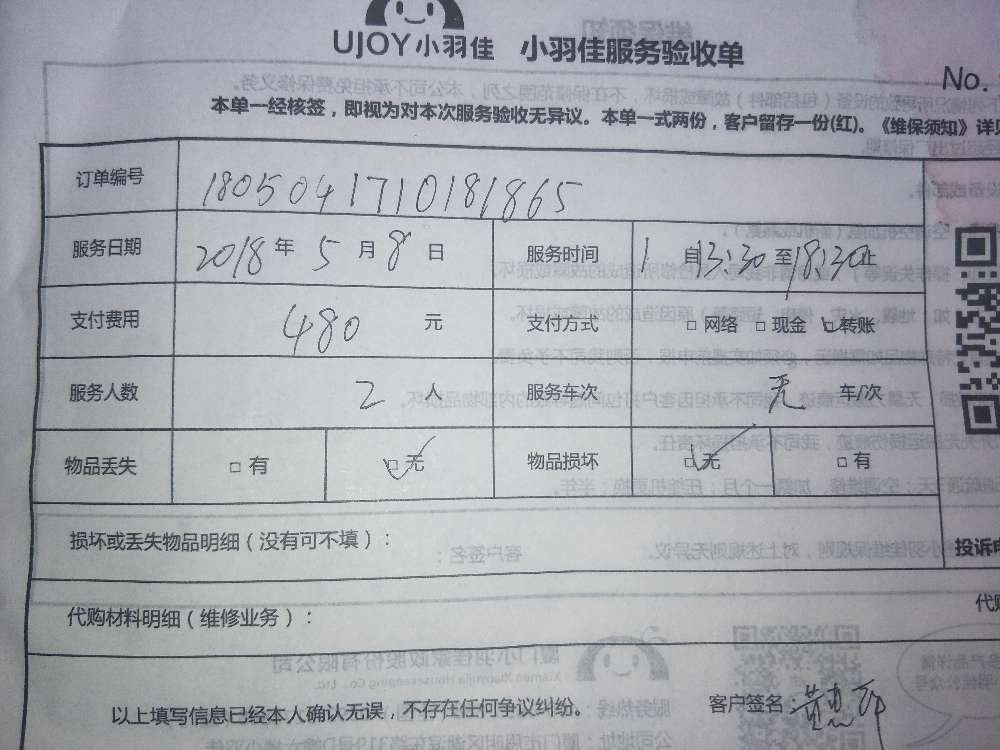 UJOY小羽佳 小羽佳服务验收单
No.
本单一经核签，即视为对本次服务验收无异议。本单一式两份，客户留存一份(红)。《维保须知》详见
订单编号 1805041710181865
服务日期 2018年5月8日 服务时间 1 自13:30至18:30止
支付费用 480 元 支付方式 □网络 □现金 □转账
服务人数 2 人 服务车次 无 车/次
物品丢失 □有 □无 物品损坏 □无 □有
损坏或丢失物品明细（没有可不填）：
投诉
代购材料明细（维修业务）：
代
以上填写信息已经本人确认无误，不存在任何争议纠纷。 客户签名：